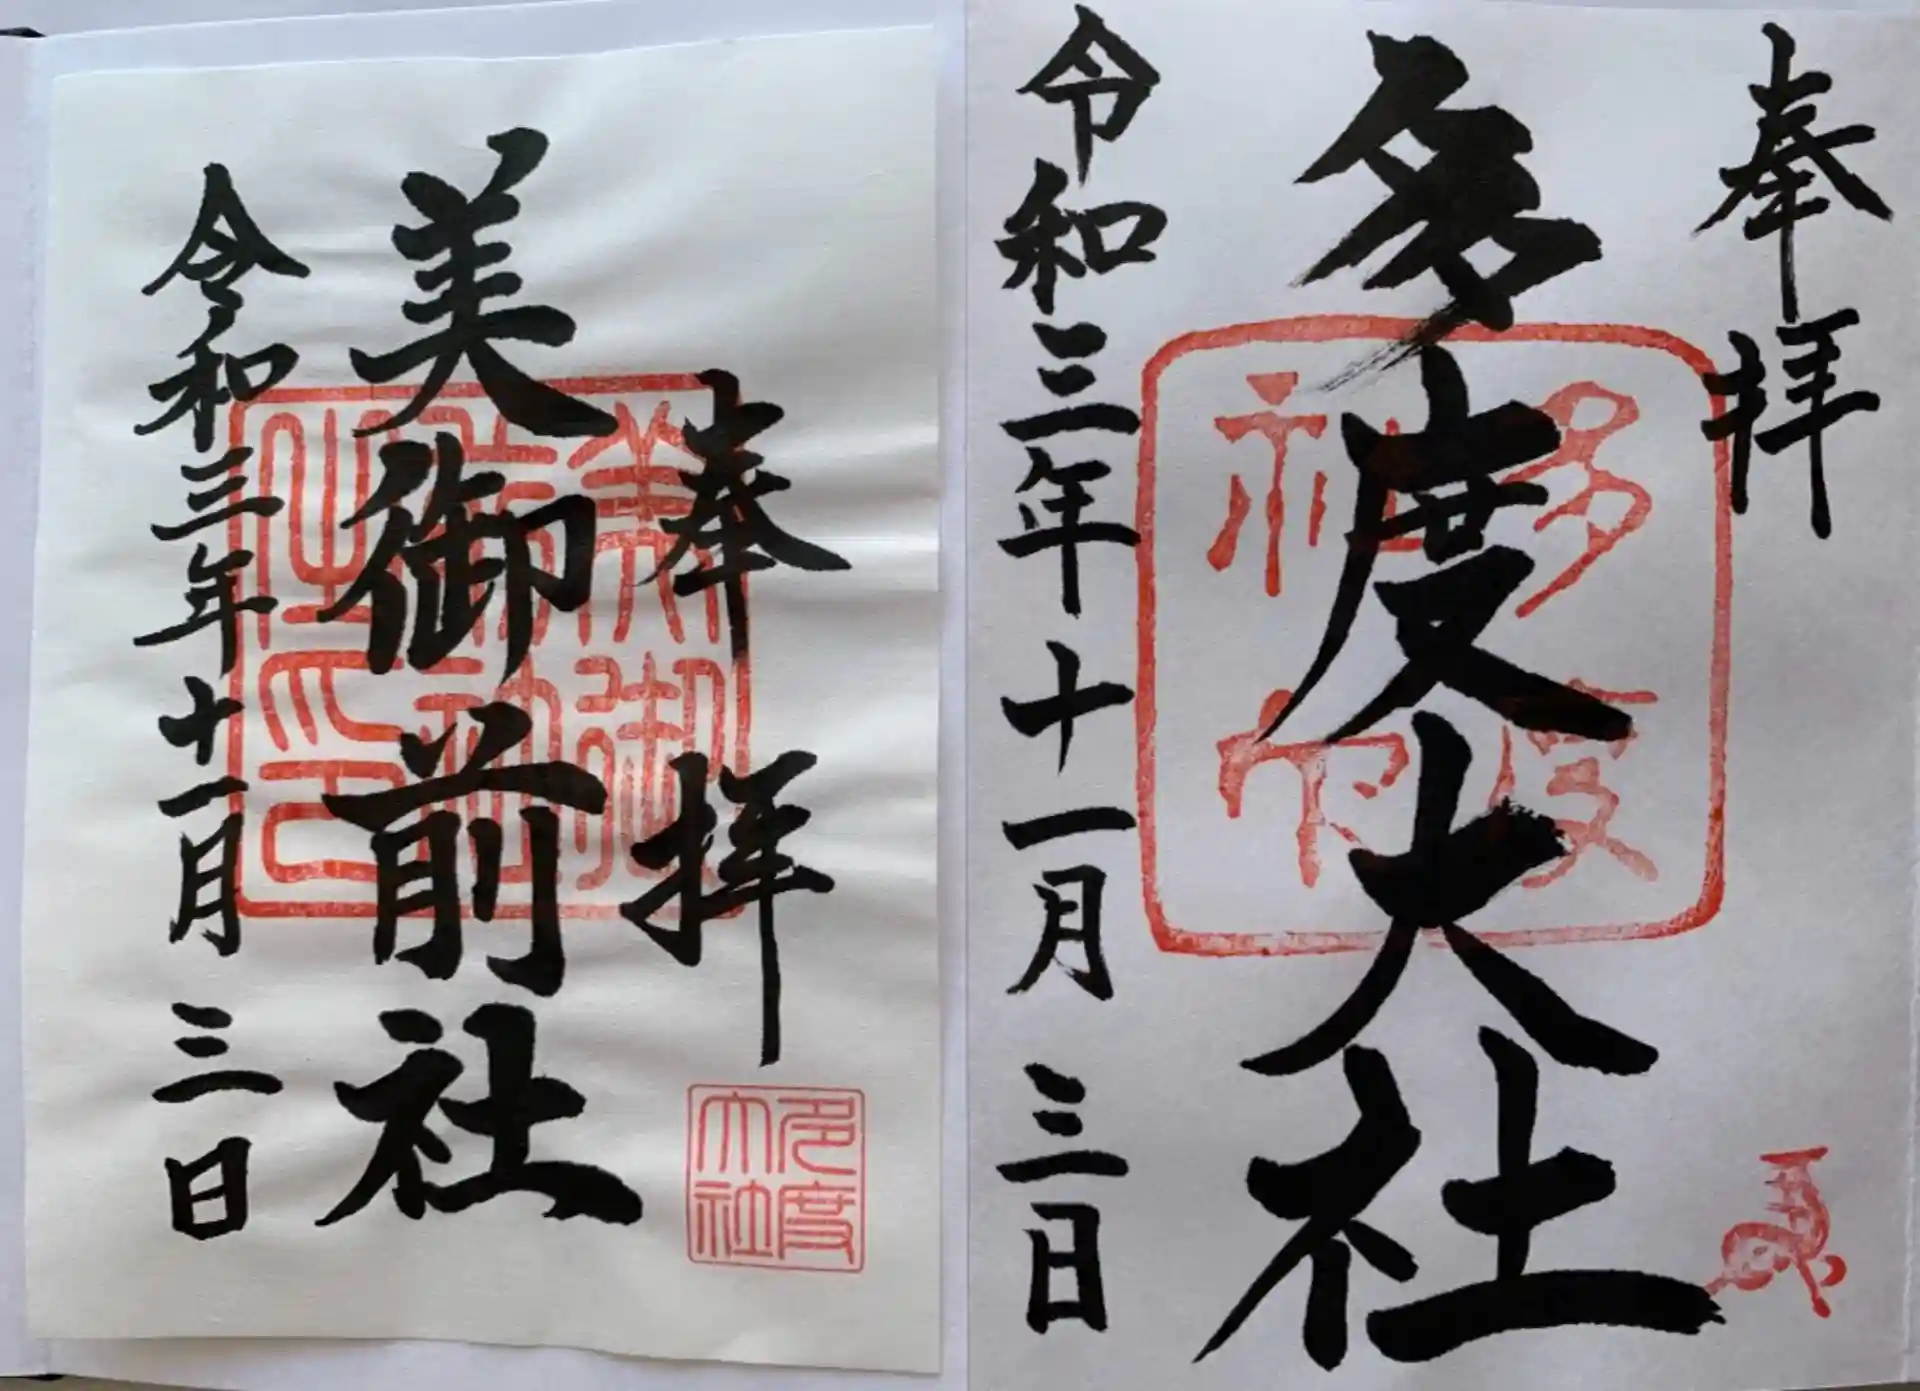 奉拝
多度大社
令和三年十一月三日
奉拝
美御前社
令和三年十一月三日
多度
大社